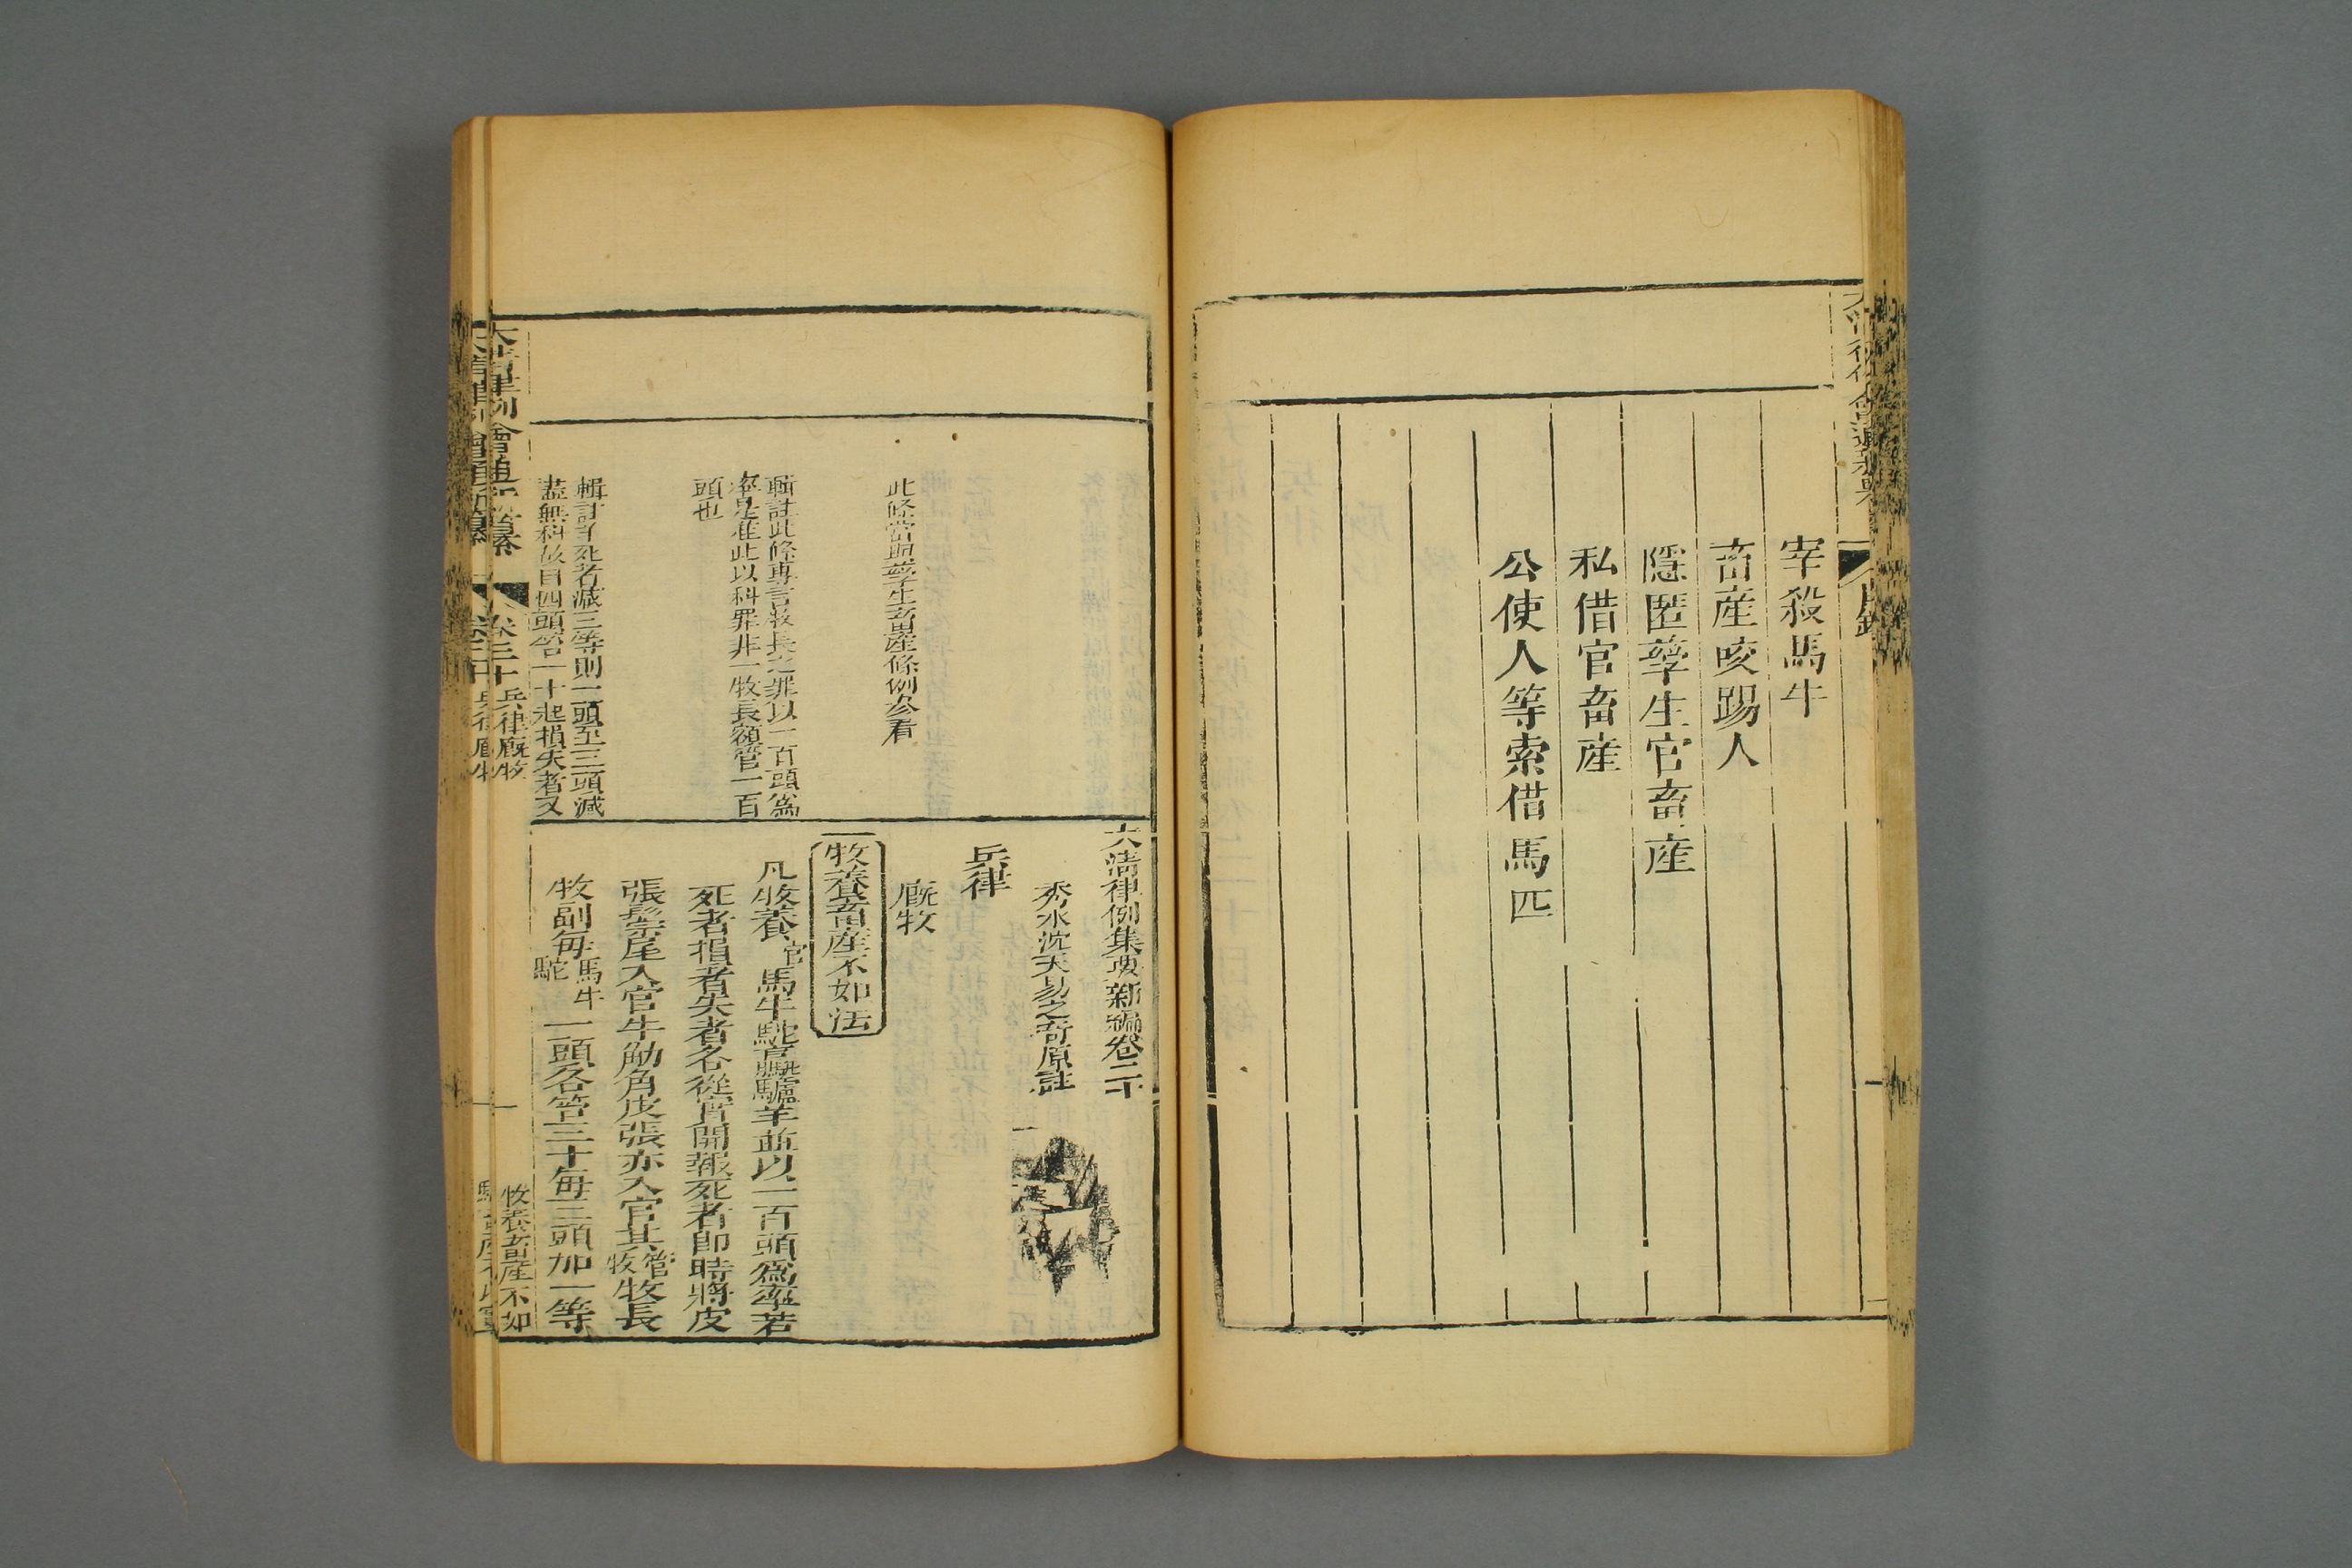 宰殺馬牛
畜産咬踢人
隱匿孳生官畜産
私借官畜産
公使人等索借馬匹
此條當與孳生畜産條例參看
輯註此條專言牧長之罪以一百頭爲
率是准此以科罪非一牧長額管一百
頭也
輯註羊死者減三等則一頭至三頭減
盡無科故自四頭笞一十起損失者又
大清律例集要新編卷二十
秀水沈天易之奇原註
兵律
廄牧
牧養畜産不如法
凡牧養官馬牛駝驘驢羊並以一百頭爲率若
死者損者失者各從實開報死者即時將皮
張鬃尾入官牛觔角皮張亦入官其管牧牧長
牧副每馬牛駝一頭各笞三十每三頭加一等
大清律例會通新纂
卷二十
兵律廄牧
牧養畜産不如